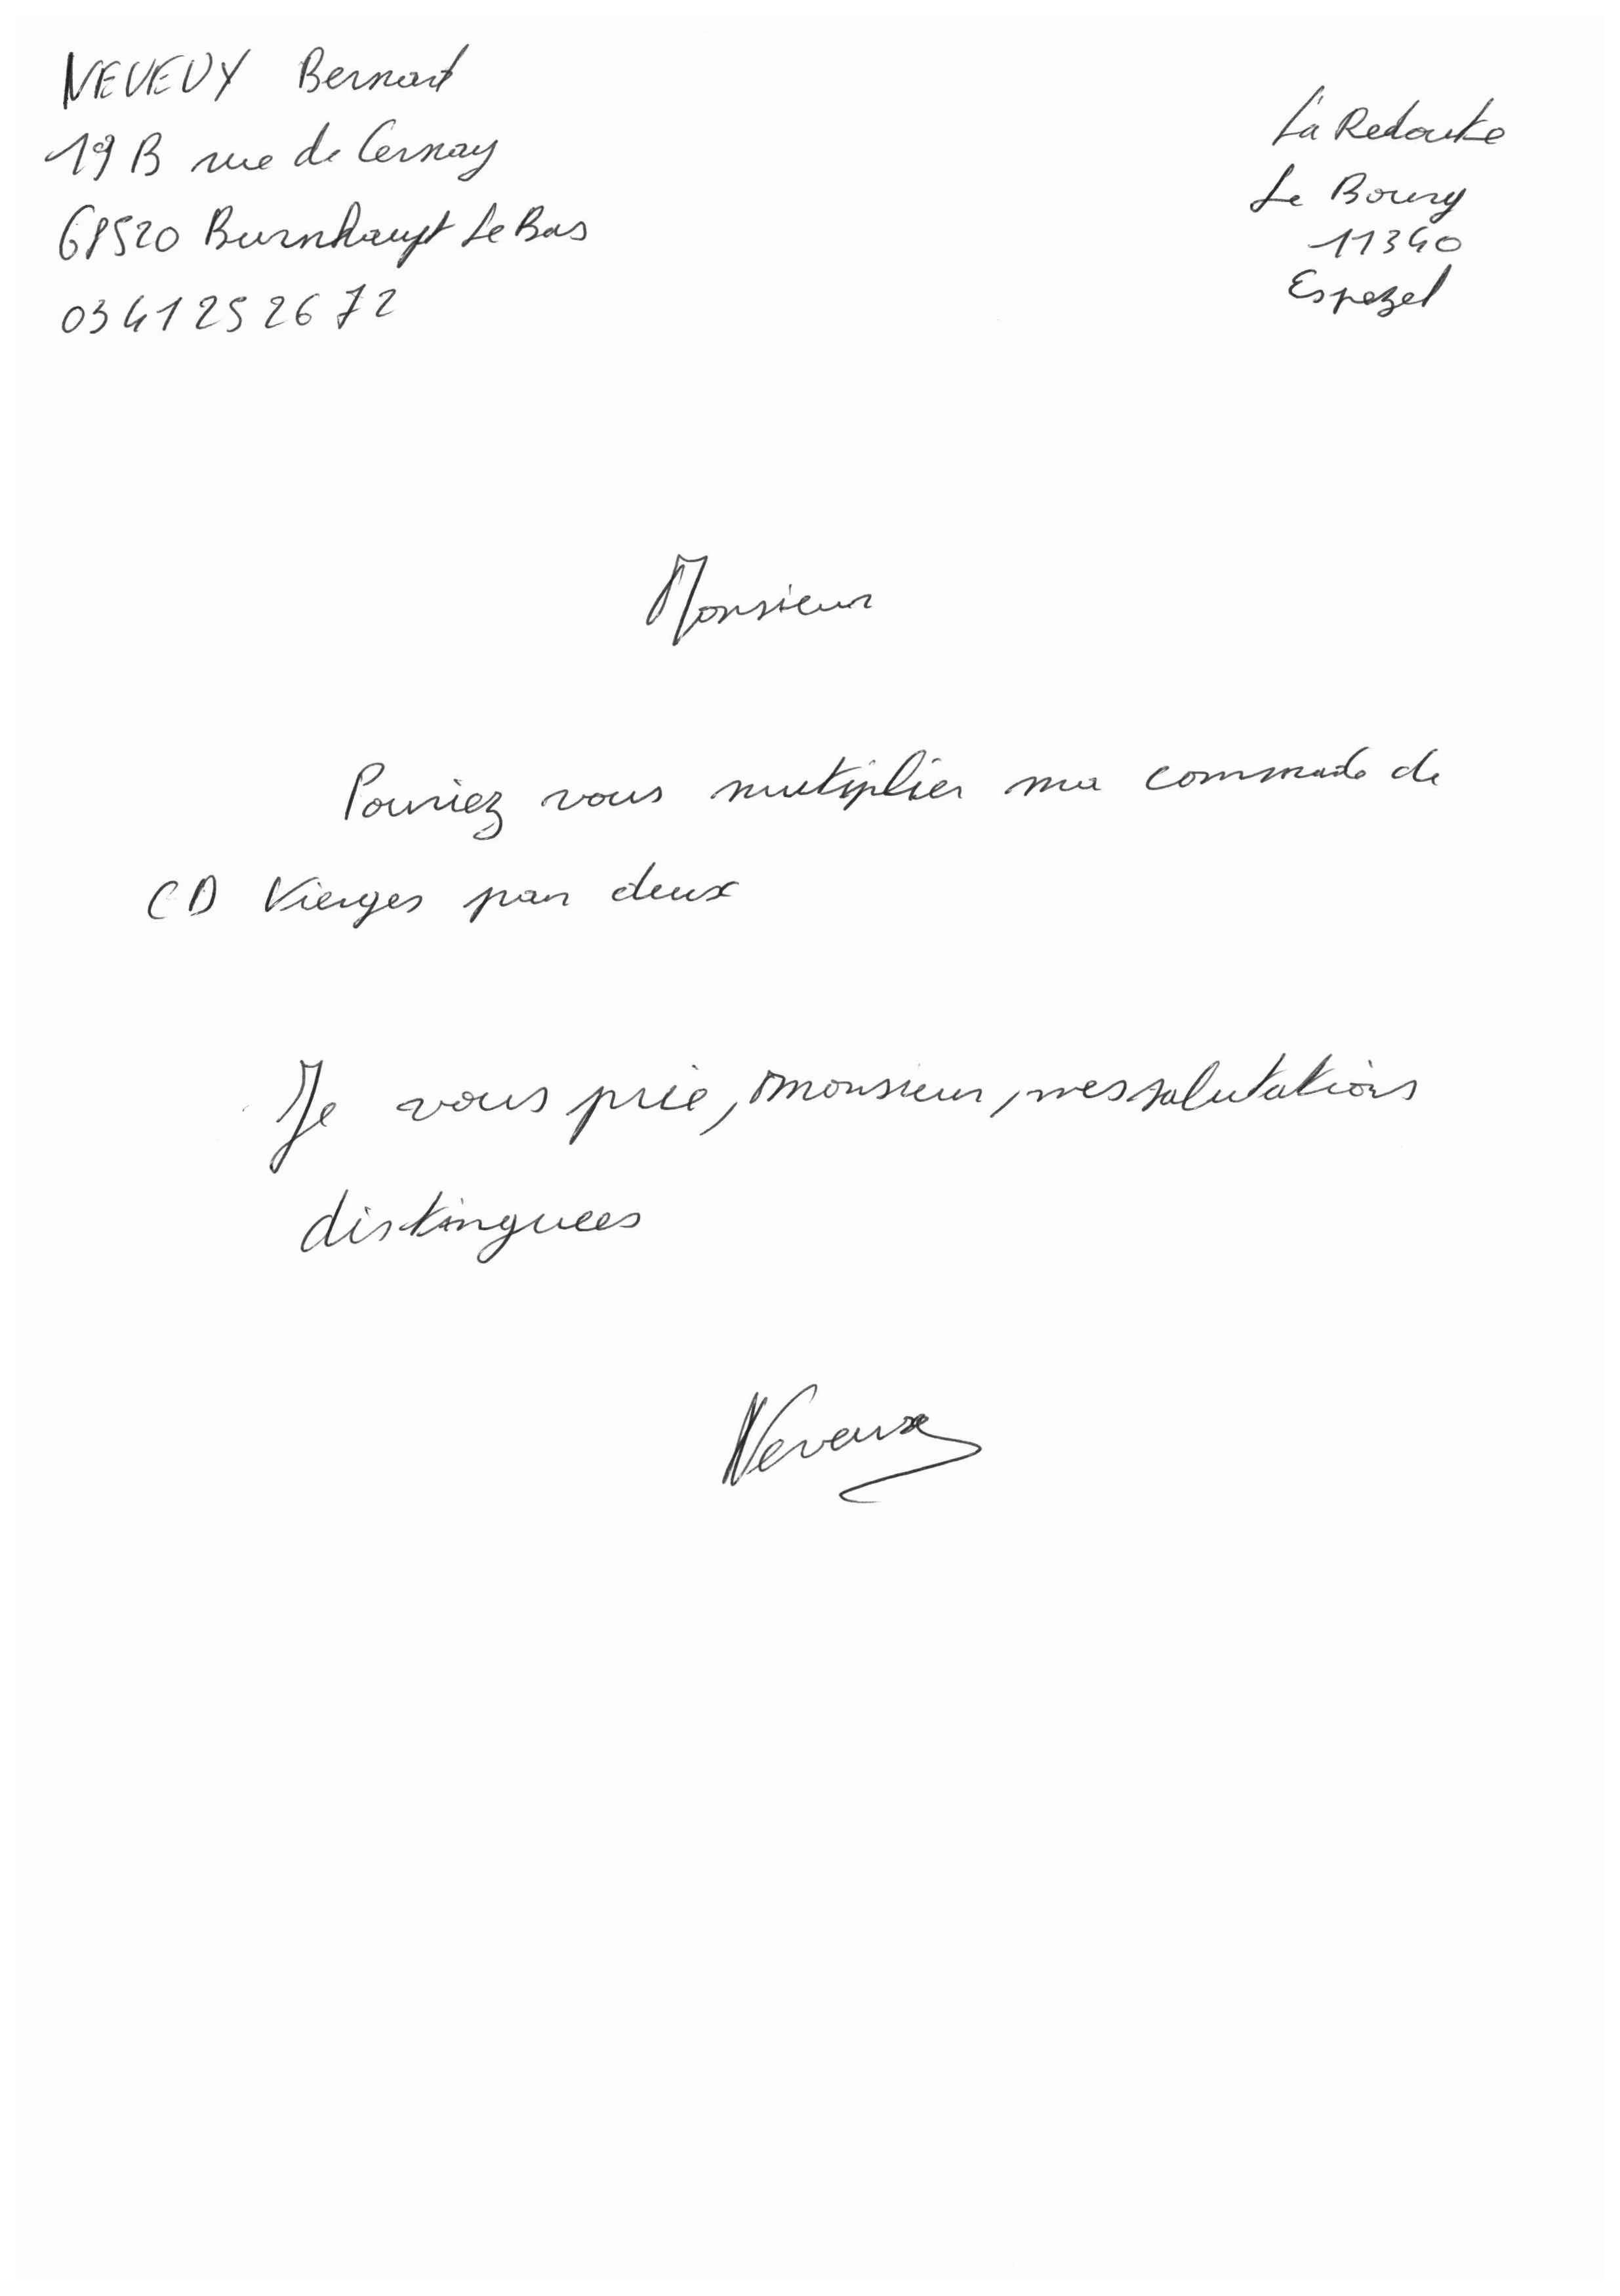 NEVEUX Bernard
19 B rue de Cernay
68520 Burnhaupt Le Bas
0341252672
La Redoute
Le Bourg
11340
Espezel
Monsieur
Pouriez vous mutiplier ma commade de
CD Vierges par deux
Je vous prie, monsieur, mes salutations
distinguees
Neveux